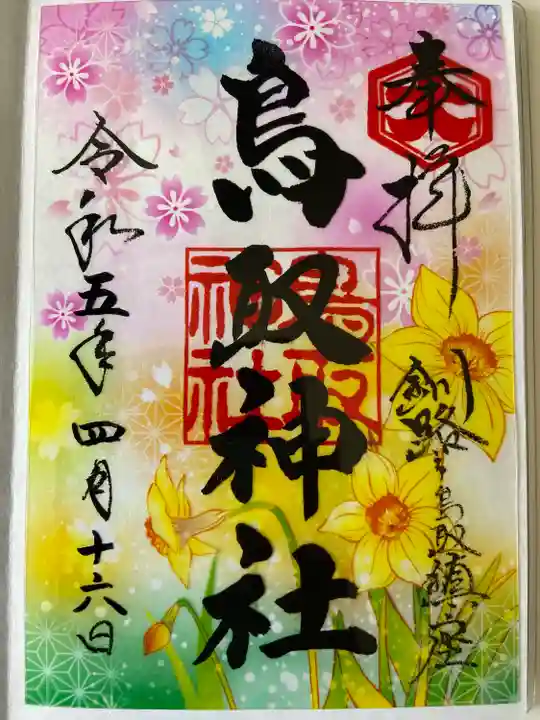 奉拝
釧路ノ鳥取鎮座
鳥取神社
鳥取神社
令和五年四月十六日